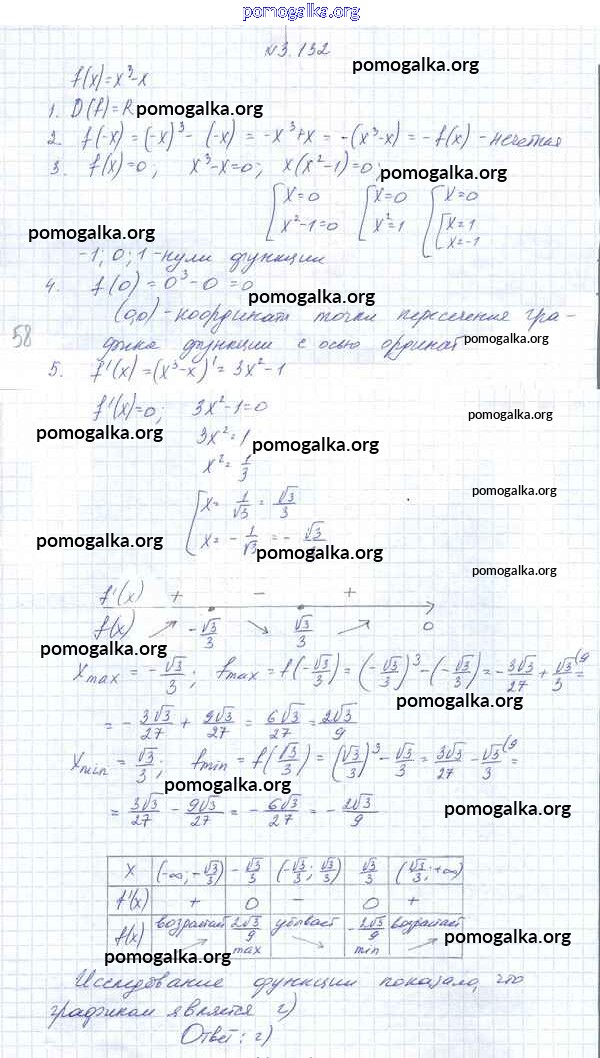 pomogalka.org
N3.132
pomogalka.org
f(x)=x³-x
1. D(f)=R pomogalka.org
2. f(-x)=(-x)³-(-x)=-x³+x=-(x³-x)=-f(x) - нечетная
3. f(x)=0; x³-x=0; x(x²-1)=0;
pomogalka.org
[x=0 [x=0 [x=0
x²-1=0 x²=1 [x=1
x=-1
pomogalka.org
-1; 0; 1 - нули функции
4. f(0)=0³-0=0
pomogalka.org
(0;0) - координаты точки пересечения гра-
58
фика функции с осью ординат
pomogalka.org
5. f'(x)=(x³-x)'=3x²-1
f'(x)=0; 3x²-1=0
pomogalka.org
pomogalka.org
3x²=1
pomogalka.org
x²=1/3
pomogalka.org
[x=1/√3=√3/3
x=-1/√3=-√3/3
pomogalka.org
pomogalka.org
pomogalka.org
f'(x) + - +
f(x) ↗ -√3/3 ↘ √3/3 ↗ 0
pomogalka.org
x max = -√3/3; f max = f(-√3/3)=(-√3/3)³-(-√3/3)=-3√3/27+√3/3(9=
pomogalka.org
=-3√3/27+9√3/27=6√3/27=2√3/9
x min = √3/3; f min = f(√3/3)=(√3/3)³-√3/3=3√3/27-√3/3(9=
pomogalka.org
=3√3/27-9√3/27=-6√3/27=-2√3/9
pomogalka.org
x (-∞;-√3/3) -√3/3 (-√3/3;√3/3) √3/3 (√3/3;+∞)
f'(x) + 0 - 0 +
f(x) возрастает ↗ 2√3/9 max убывает ↘ -2√3/9 min возрастает ↗
pomogalka.org
pomogalka.org
Исследование функции показало, что
графиком является г)
Ответ: г)